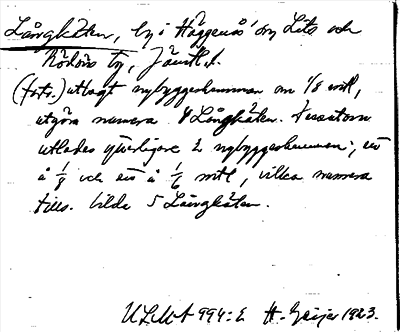 Långkälen, by i Häggenås' sn, Lits och
Rödöns tg, Jämtl. l.
(forts.) utlagt nybyggeshemman om 1/8 mtl,
utgöra numera 4 Långkälen. Dessutom
utlades ytterligare 2 nybyggeshemman, ett
å 1/8 och ett å 1/6 mtl, vilka numera
tills. bilda 5 Långkälen.
ULMA 994:2 H. Geijer 1923.